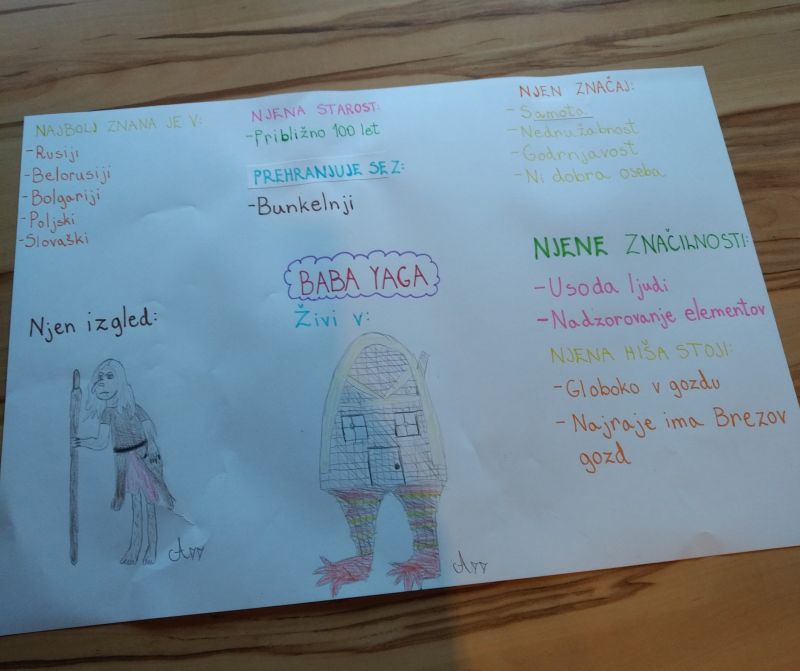 NAJBOLJ ZNANA JE V:
-Rusiji
-Belorusiji
-Bolgariji
-Poljski
-Slovaški
NJENA STAROST:
-Približno 100 let
PREHRANJUJE SE Z:
-Bunkelnji
NJEN ZNAČAJ:
-Samota
-Nednužabnost
-Godrnjavost
-Ni dobra oseba
BABA YAGA
NJENE ZNAČILNOSTI:
-Usoda ljudi
-Nadzorovanje elementov
NJENA HIŠA STOJI:
-Globoko v gozdu
-Najraje ima Brezov
gozd
Njen izgled:
Živi v: